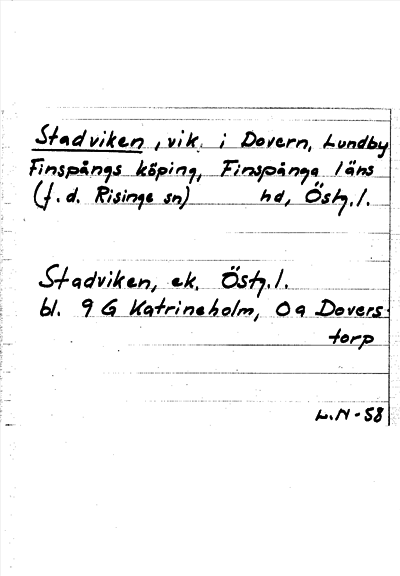 Stadviken, vik i Dovern, Lundby
Finspångs köping, Finspånga läns
(f.d. Risinge sn) hd, Östg.l.
Stadviken, ek. Östg.l.
bl. 9 G Katrineholm, 0a Dovers-
torp
L.N-58